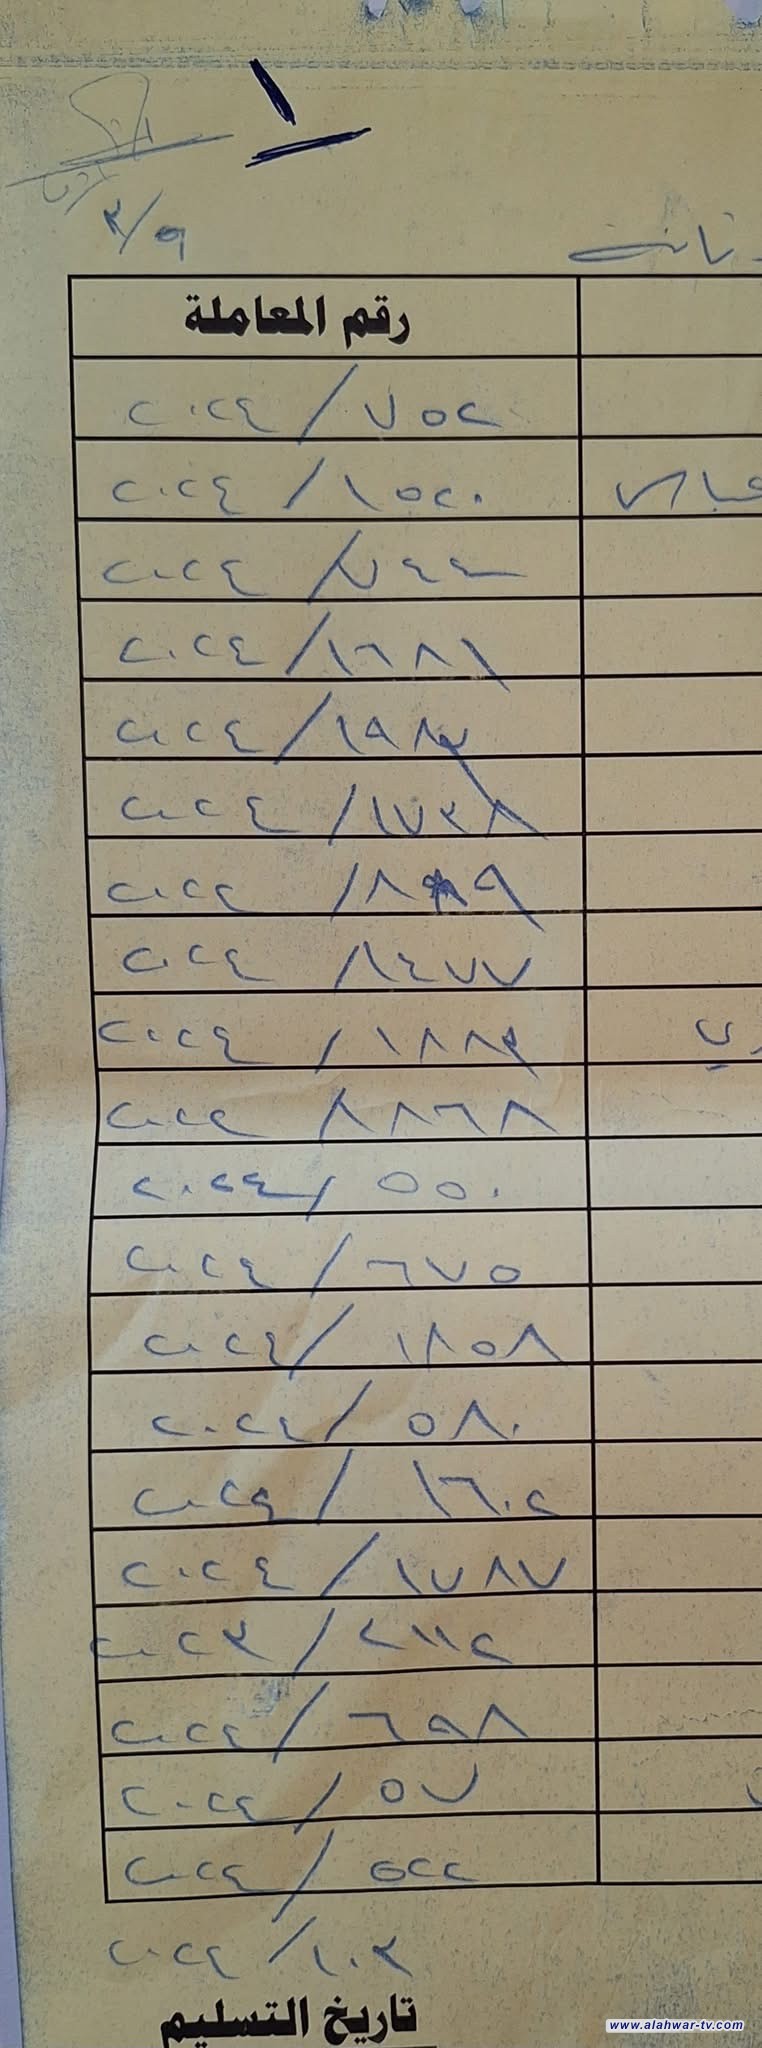 ١
٣/٩
رقم المعاملة
٢٠٢٤/٧٥٢
٢٠٢٤/١٥٢٠
عباس
٢٠٢٤/٧٤٤
٢٠٢٤/١٦٨٩
٢٠٢٤/١٩٨٣
٢٠٢٤/١٧٣٨
٢٠٢٤
٢٠٢٤/١٤٧٧
٢٠٢٤/١٨٨٣
٢٠٢٤/١٨٦٨
٢٠٢٤/٥٥٠
٢٠٢٤/٦٧٥
٢٠٢٤/١٨٥٨
٢٠٢٤/٥٨٠
٢٠٢٤/١٦٠٢
٢٠٢٤/١٧٨٧
٢٠٢٣/٢١١٢
٢٠٢٤/٦٩٨
٢٠٢٤/٥٧
٢٠٢٤/٥٢٢
٢٠٢٤/١٠٣
تاريخ التسليم
www.alahwar-tv.com